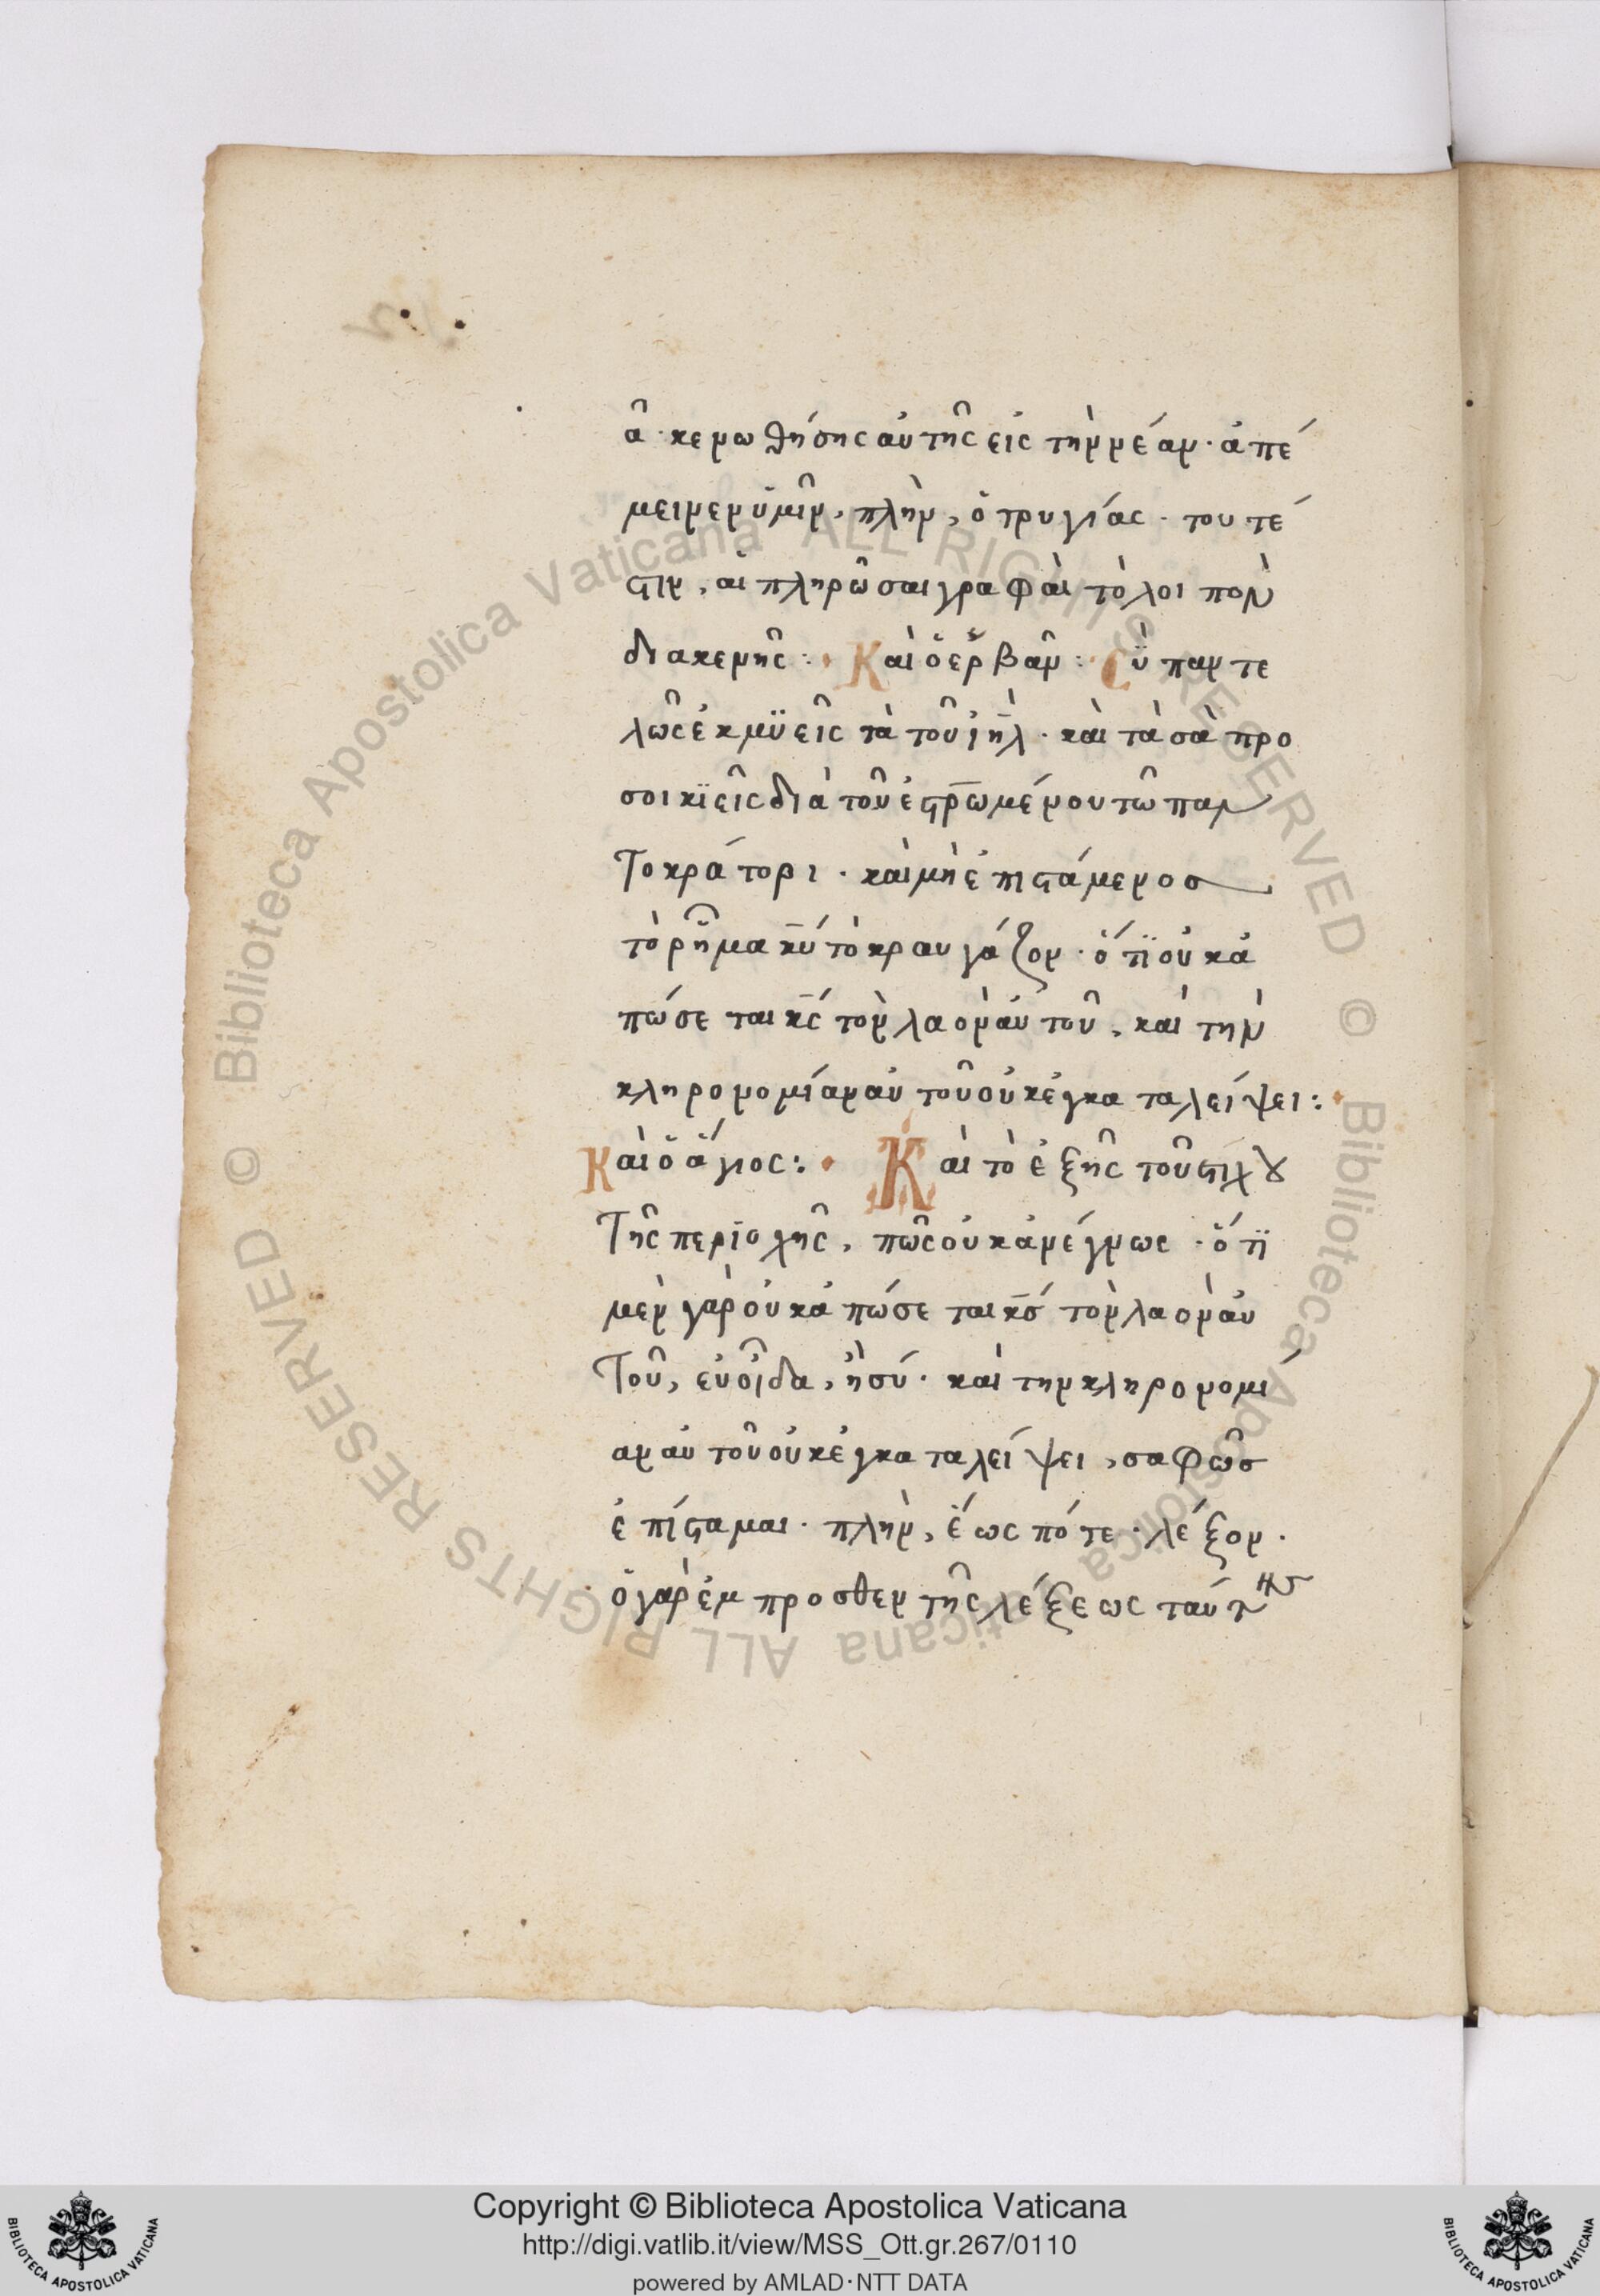 ᾶ· κενωθήσης αὐτῆς εἰς τὴν νέαν· ἀπέ
μεινεν ὑμῖν, πλὴν, ὁ τρυγίας· τουτέ
στιν, αἱ πληρῶσαι γραφαὶ τὸ λοιπὸν
διακενῆς :· Καὶ ὁ ἑρβᾶν :· Σὺ παντε
λῶς ἐκμϋεῖς τὰ τοῦ ἰηλ· καὶ τὰ σὰ προ
σοικϊεῖς διὰ τοῦ ἐστρωμένου τῶ παν
τοκράτορι· καὶ μὴ ἐπιστάμενος
τὸ ρῆμα κυ τὸ κραυγάζον· ὅτϊ οὐκ ἀ
πώσεται κς τὸν λαὸν αὐτοῦ, καὶ τὴν
κληρονομίαν αὐτοῦ οὐκ ἐγκαταλείψει :·
Καὶ ὁ ἅγιος :· Καὶ τὸ ἑξῆς τοῦ στίχου
τῆς περϊοχῆς, πῶς οὐκ ἀνέγνως· ὅτϊ
μὲν γὰρ οὐκ ἀπώσεται κς τὸν λαὸν αὐ
τοῦ, εὐοῖδα, ἢ σύ· καὶ τὴν κληρονομί
αν αὐτοῦ οὐκ ἐγκαταλείψει, σαφῶς
ἐπίσταμαι· πλὴν, ἕως πότε· λέξον·
ὁ γὰρ ἔμπροσθεν τῆς λέξεως ταύτης
Copyright © Biblioteca Apostolica Vaticana
http://digi.vatlib.it/view/MSS_Ott.gr.267/0110
powered by AMLAD·NTT DATA
BIBLIOTECA APOSTOLICA VATICANA
BIBLIOTECA APOSTOLICA VATICANA
© Biblioteca Apostolica Vaticana ALL RIGHTS RESERVED
© Biblioteca Apostolica Vaticana ALL RIGHTS RESERVED